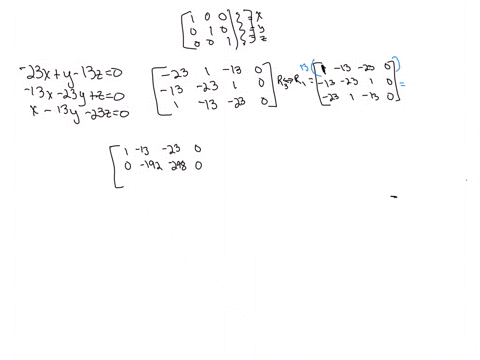 [1 0 0 | } = x
0 1 0 | } = y
0 0 1 | } = z
-23x+y-13z=0
-13x-23y+z=0
x-13y-23z=0
[-23 1 -13 0
-13 -23 1 0
1 -13 -23 0]
R3↔R1=
13(
[1 -13 -23 0
-13 -23 1 0
-23 1 -13 0]
) =
[1 -13 -23 0
0 -192 -298 0